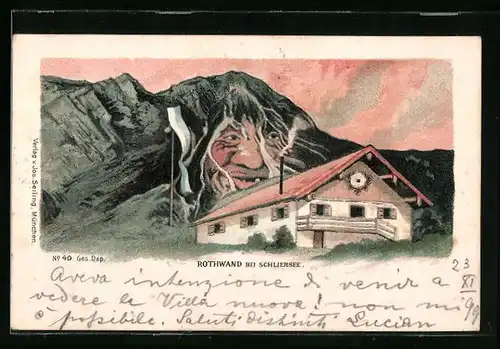 Verlag v. Jos. Seiling, München.
No 40 Ges. Dep.
ROTHWAND BEI SCHLIERSEE.
Aveva intenzione di venir a
vedere la Villa nuova! non mi
è possibile. Saluti distinti Lucian
23
XI
99